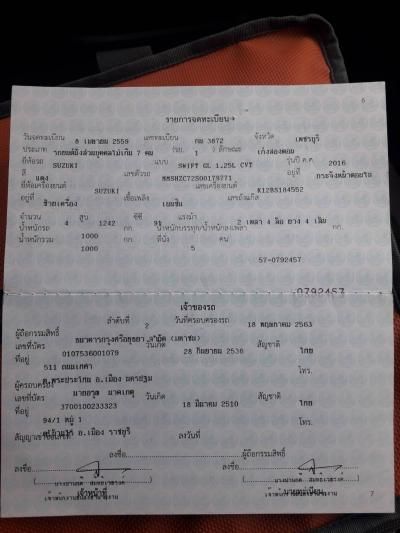 6
รายการจดทะเบียน
วันจดทะเบียน 8 เมษายน 2559 เลขทะเบียน กม 3872 จังหวัด เพชรบุรี
ประเภท รถยนต์นั่งส่วนบุคคลไม่เกิน 7 คน (รย. 1 ) ลักษณะ เก๋งสองตอน
ยี่ห้อรถ SUZUKI แบบ SWIFT GL 1.25L CVT รุ่นปี ค.ศ. 2016
สี แดง เลขตัวรถ อยู่ที่ กระจังหน้าตอนรถ
ยี่ห้อเครื่องยนต์ SUZUKI เลขเครื่องยนต์ K12BS184552
อยู่ที่ ซ้ายเครื่อง เชื้อเพลิง เบนซิน เลขถังแก๊ส
จำนวน 4 สูบ 1242 ซีซี 91 แรงม้า 2 เพลา 4 ล้อ ยาง 4 เส้น
น้ำหนักรถ 1000 กก. น้ำหนักบรรทุก/น้ำหนักลงเพลา กก.
น้ำหนักรวม 1000 กก. ที่นั่ง 5 คน
57-0792457
0792457
เจ้าของรถ
ลำดับที่ 2 วันที่ครอบครองรถ 18 พฤษภาคม 2563
ผู้ถือกรรมสิทธิ์ ธนาคารกรุงศรีอยุธยา จำกัด (มหาชน)
เลขที่บัตร 0107536001079 วันเกิด 28 กันยายน 2536 สัญชาติ ไทย
ที่อยู่ 511 โทร.
ต.พระประโทน อ.เมือง นครปฐม
ผู้ครอบครอง
เลขที่บัตร 3700100233323 วันเกิด 18 มีนาคม 2510 สัญชาติ ไทย
ที่อยู่ 94/1 หมู่ 1 โทร.
อ.เมือง ราชบุรี
ลงวันที่
ลงชื่อ ผู้ถือกรรมสิทธิ์
ลงชื่อ ลงชื่อ
เจ้าหน้าที่ นายทะเบียน
7